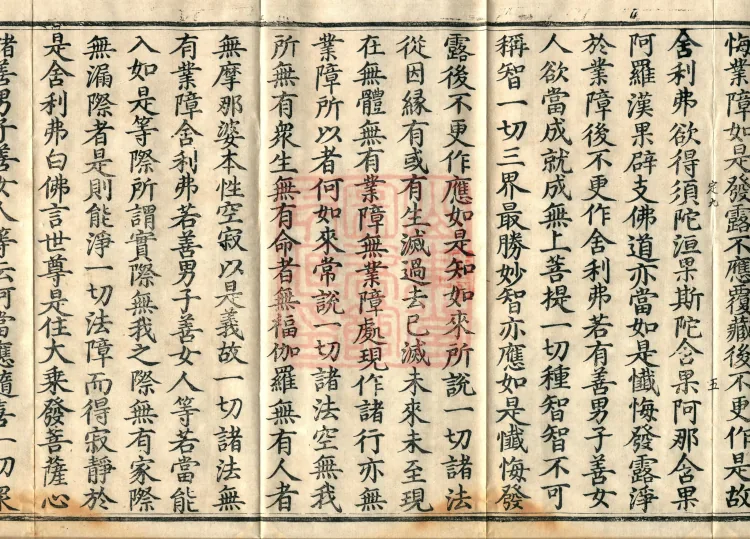 悔業障如是發露不應覆藏後不更作是故
定九 五
舍利弗欲得須陀洹果斯陀含果阿那含果
阿羅漢果辟支佛道亦當如是懺悔發露淨
於業障後不更作舍利弗若有善男子善女
人欲當成就成無上菩提一切種智智不可
稱智一切三界最勝妙智亦應如是懺悔發
露後不更作應如是知如來所說一切諸法
從因緣有或有生滅過去已滅未來未至現
在無體無有業障無業障處現作諸行亦無
業障所以者何如來常說一切諸法空無我
所無有眾生無有命者無福伽羅無有人者
無摩那婆本性空寂以是義故一切諸法無
有業障舍利弗若善男子善女人等若當能
入如是等際所謂實際無我之際無有家際
無漏際者是則能淨一切法障而得寂靜於
是舍利弗白佛言世尊是住大乘發菩薩心
諸善男子善女人等云何當應隨喜一切眾